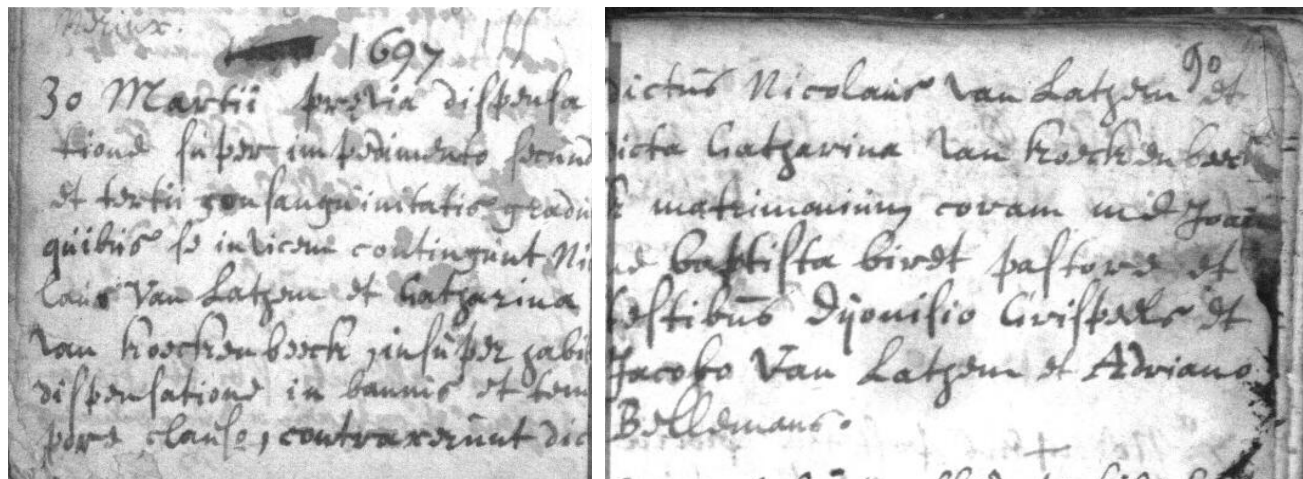 1697
30 Martii previa dispensa
tione super impedimento secund
et tertii consanguinitatis gradu
quibus se invicem contingunt Ni
laus Van Lathem et Catharina
van Koeckenbeeck, insuper habi
dispensatione in bannis et tem
pore clauso, contraxerunt dic
90
dictus Nicolaus van Lathem et
dicta Catharina van Koeckenbeeck
matrimonium coram me Joan
ne baptista biret pastore et
testibus Dijonisio Crispeels et
Jacobo Van Lathem et Adriano
Bellemans.